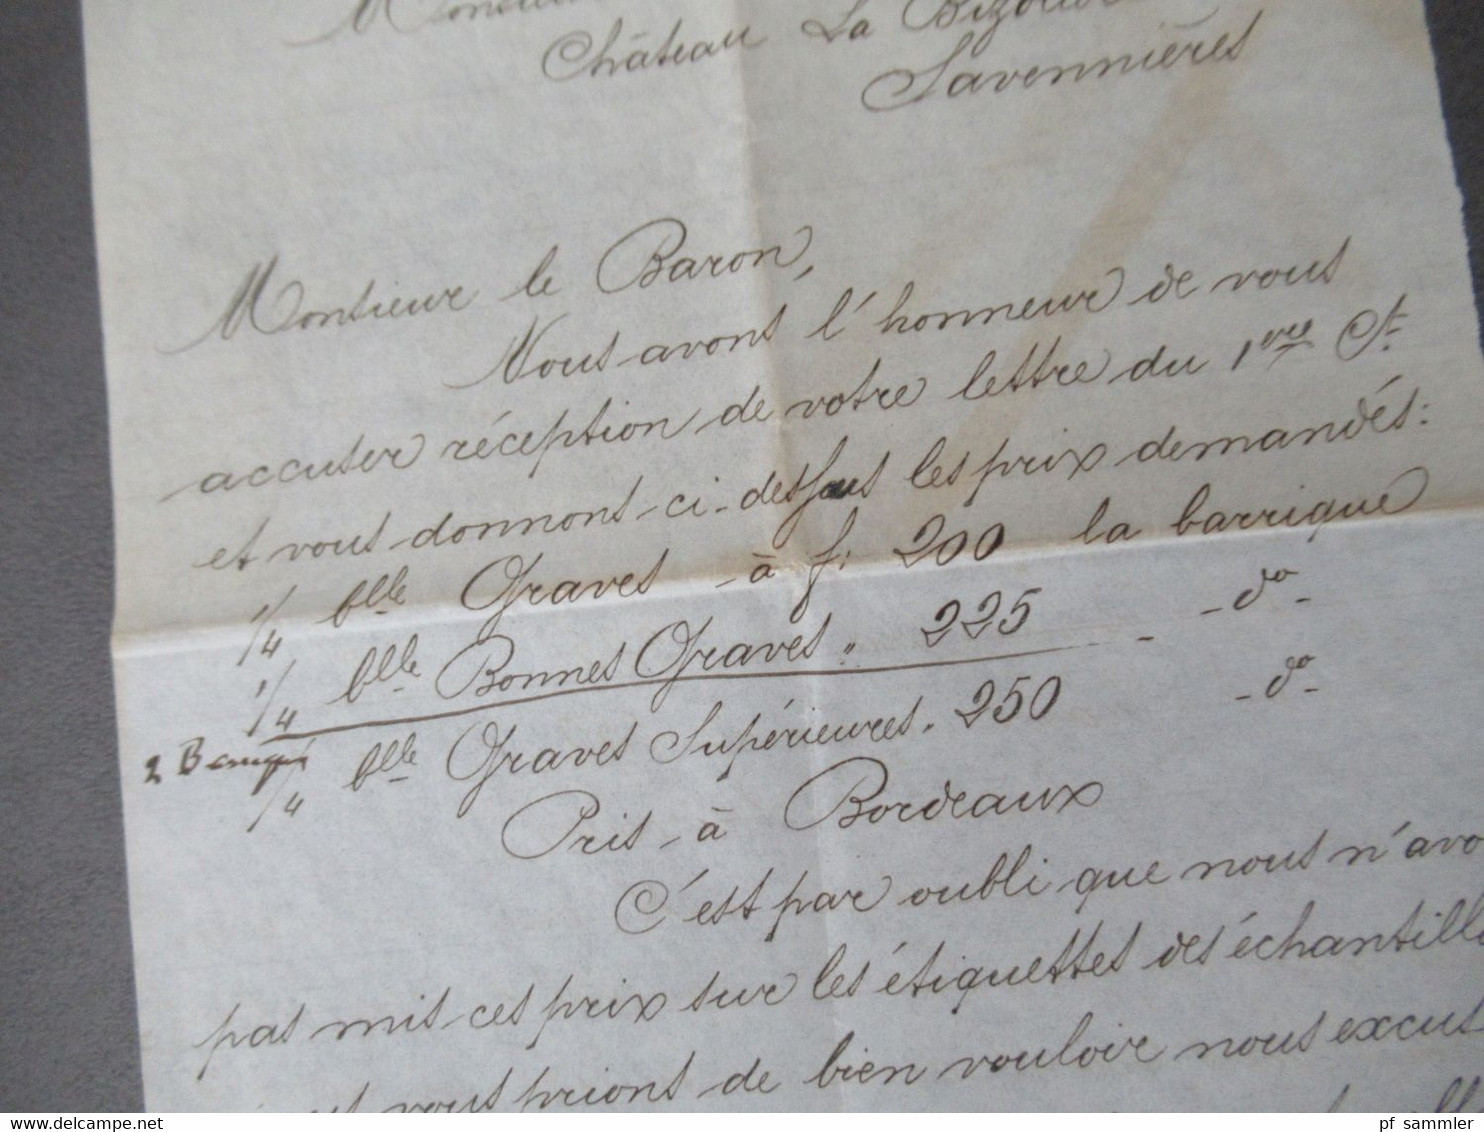 Monsieur
Château La Bizolière
Savennières
Monsieur le Baron,
Nous avons l'honneur de vous
accuser réception de votre lettre du 1er ct
et vous donnons ci-dessous les prix demandés:
1/4 blle Graves - à f. 200 la barrique
1/4 blle Bonnes Graves " 225 - do -
2 Barriques
1/4 blle Graves Supérieures " 250 - do -
Pris à Bordeaux
C'est par oubli que nous n'avo
pas mis ces prix sur les étiquettes des échantillo
vous prions de bien vouloir nous excus
pf sammler